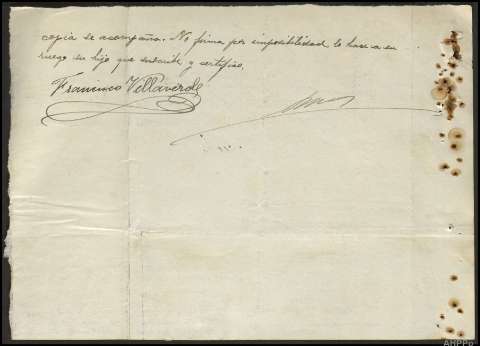 copia se acompaña. No firma por imposibilidad lo hace a su
ruego su hijo que suscribe y certifico.
Francisco Villaverde
AHPPo